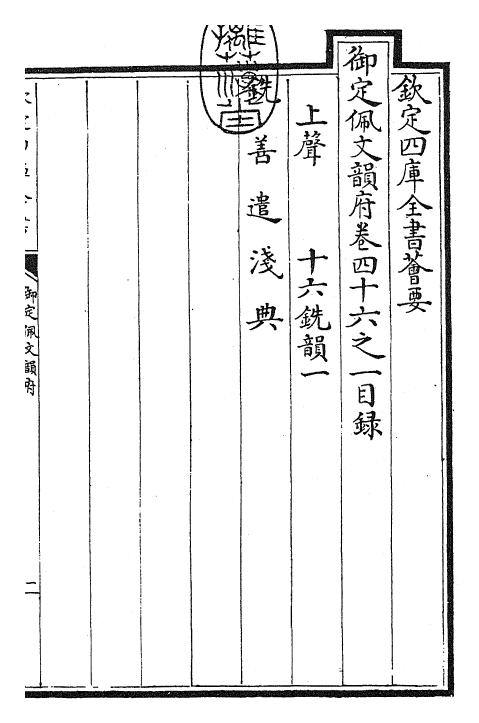 欽定四庫全書薈要
御定佩文韻府卷四十六之一目録
上聲　十六銑韻一
銑善遣淺典
御定佩文韻府
二